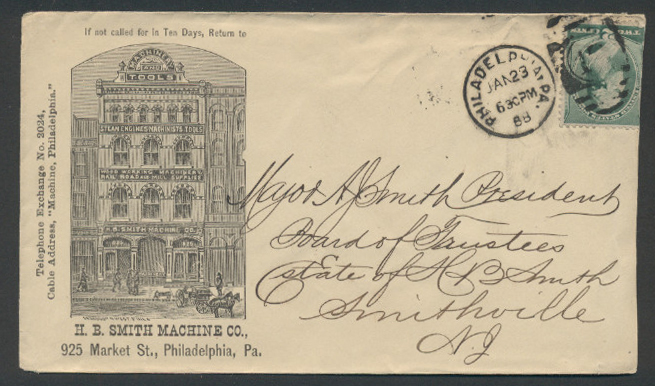 If not called for in Ten Days, Return to
MACHINERY
AND
TOOLS
STEAM ENGINES MACHINISTS TOOLS
WOOD WORKING MACHINERY
RAIL ROAD AND MILL SUPPLIES
H. B. SMITH MACHINE CO.
Telephone Exchange No. 2024,
Cable Address, "Machine, Philadelphia."
H. B. SMITH MACHINE CO.,
925 Market St., Philadelphia, Pa.
PHILADELPHIA, PA.
JAN 23
630PM
88
Major A J Smith President
Board of Trustees
Estate of H B Smith
Smithville
N J